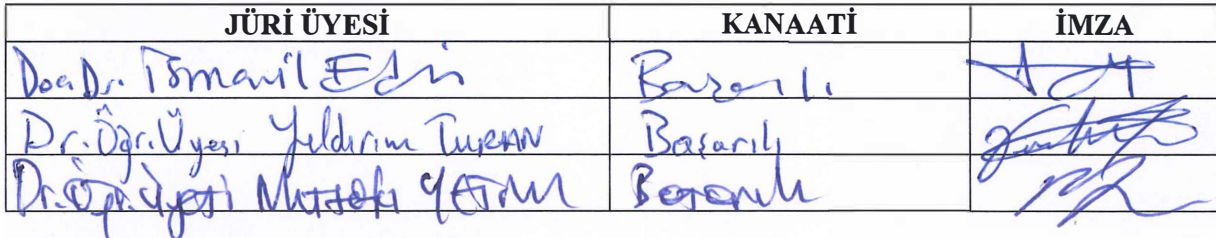 JÜRİ ÜYESİ KANAATİ İMZA
Doç.Dr. İsmail Başarılı
Dr.Öğr.Üyesi Yıldırım TURAN Başarılı
Dr.Öğr.Üyesi Başarılı